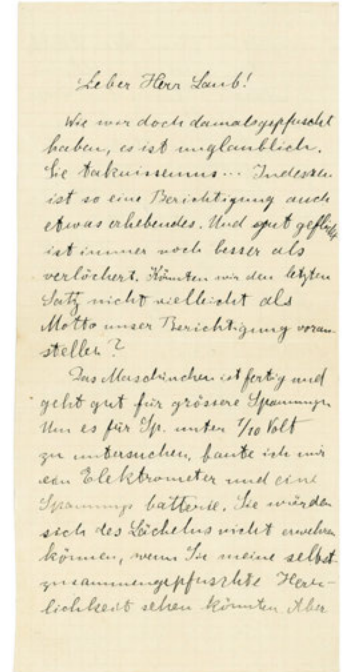 Lieber Herr Laub!
Wie wir doch damals gepfuscht
haben, es ist unglaublich.
Sie
Indessen
ist so eine Berichtigung auch
etwas erhebendes. Und gut geflickt
ist immer noch besser als
verlöchert. Könnten wir den letzten
Satz nicht vielleicht als
Motto unser Berichtigung voran-
stellen?
Das Maschinchen ist fertig und
geht gut für grössere Spannungen
Um es für Sp. unter 1/10 Volt
zu untersuchen, baute ich mir
ein Elektrometer und eine
Spannungsbatterie. Sie würden
sich des Lächelns nicht erwehren
können, wenn Sie meine selbst
zusammengepfuschte Herr-
lichkeit sehen könnten. Aber